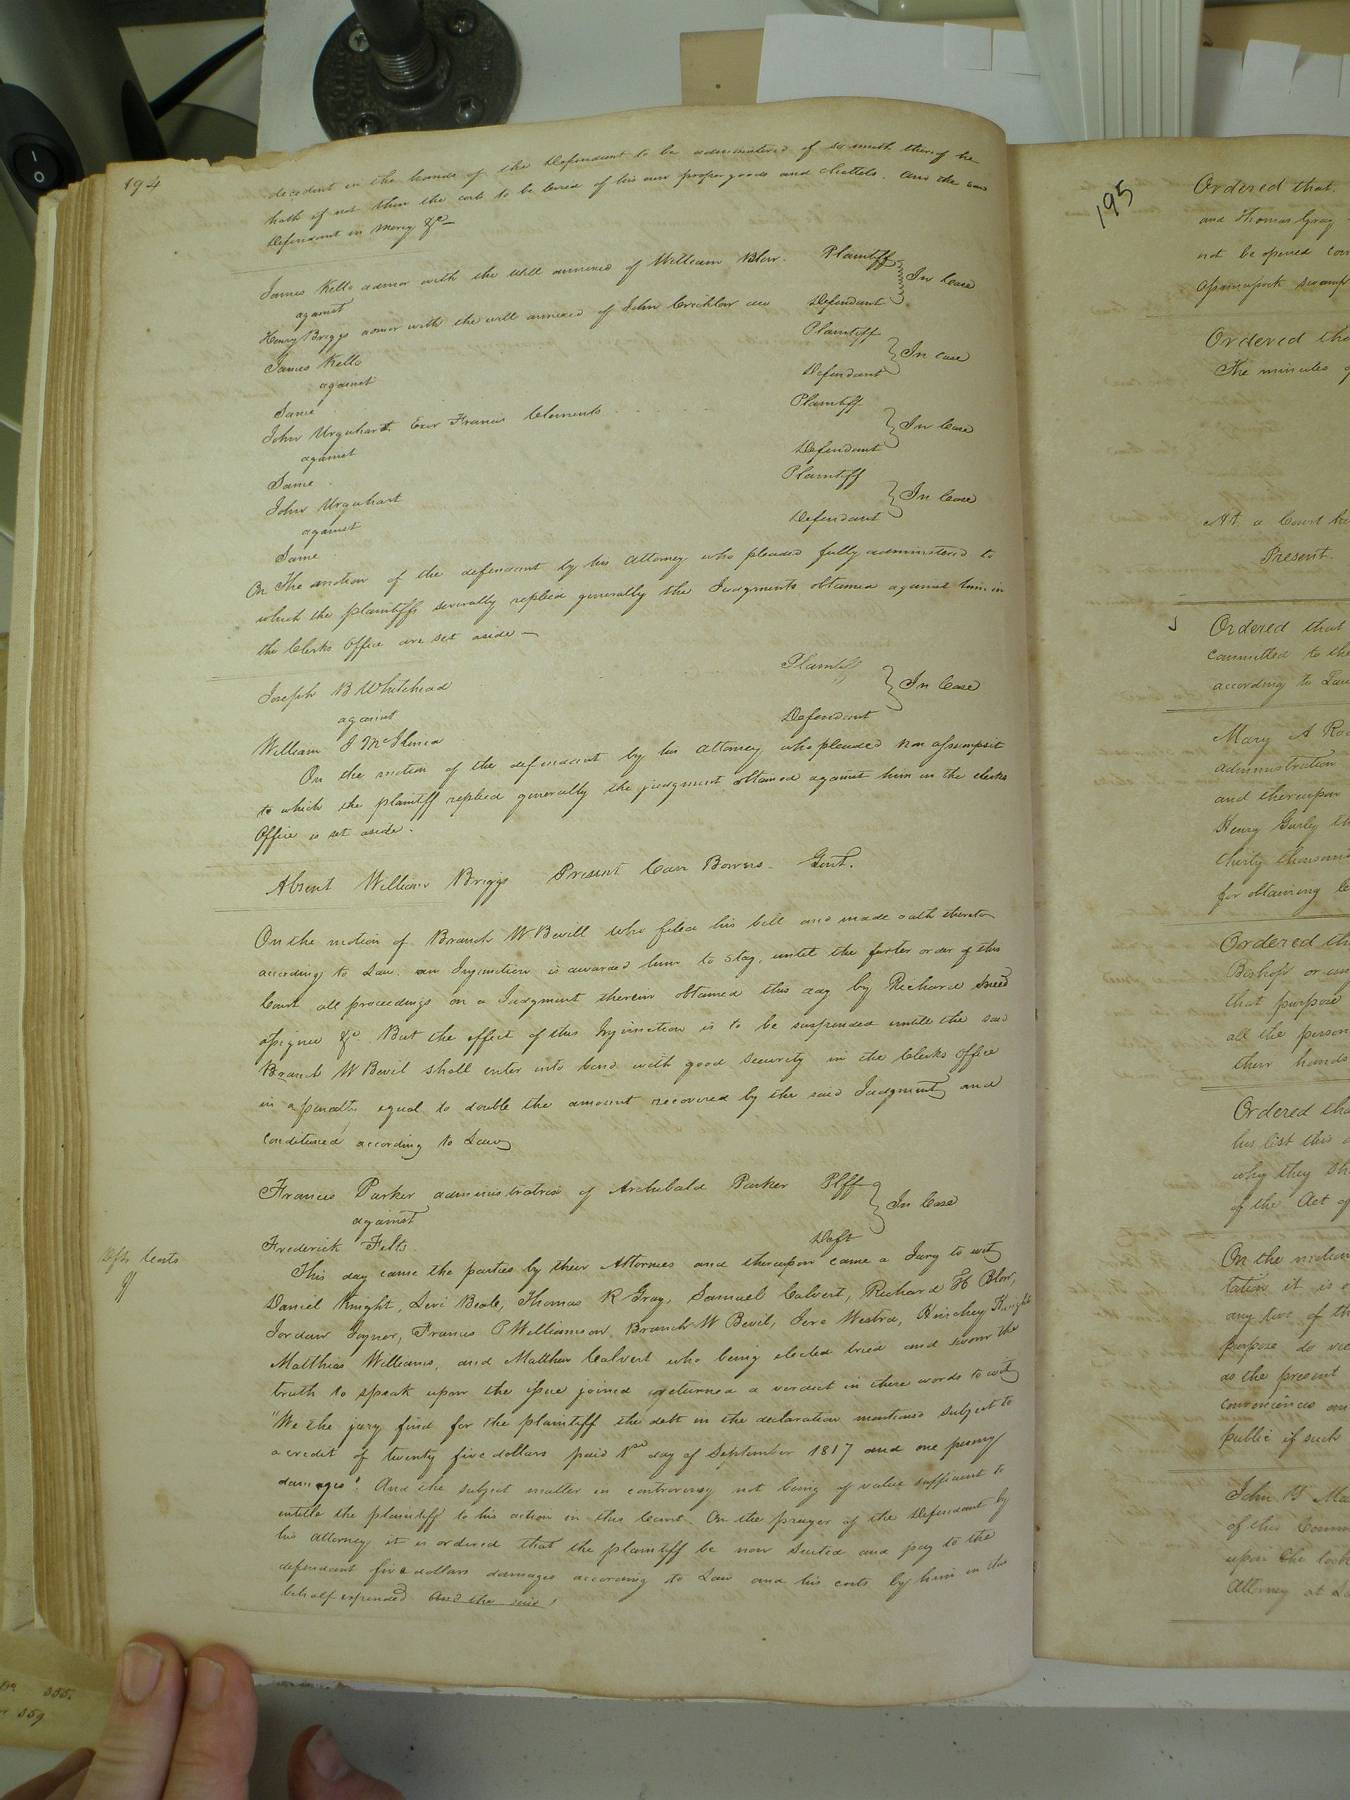 194
decedent in the hands of the Defendant to be administered if so much thereof he
hath if not then the costs to be levied of his own proper goods and chattels. And the said
Defendant in mercy &c—
James Kello admor with the will annexed of William Blow. Plaintiff
against
In Case
Henry Briggs admor with the will annexed of John Crichlow dec Defendant
James Kello Plaintiff
against
In case
Same Defendant
John Urquhart Exor Francis Clements Plaintiff
against
In Case
Same Defendant
John Urquhart Plaintiff
against
In Case
Same Defendant
On The motion of the defendant by his attorney who pleaded fully administered to
which the plaintiffs severally replied generally the Judgments obtained against him in
the Clerks Office are set aside—
Joseph B Whitehead Plaintiff
against
In Case
William Defendant
On the motion of the defendant by his attorney who pleaded non assumpsit
to which the plaintiff replied generally the judgment obtained against him in the clerks
Office is set aside.
Absent William Briggs Present Carr Bowers Gent.
On the motion of Branch W Bevill who filed his bill and made oath thereto
according to Law. an Injunction is awarded him to stay, until the further order of this
Court all proceedings on a Judgment therein obtained this day by Richard
assignee &c. But the effect of this Injunction is to be suspended untill the said
Branch W Bevil shall enter into bond with good security in the Clerks office
in a penalty equal to double the amount recovered by the said Judgment and
conditioned according to Law
Frances Parker administratrix of Archibald Parker Plff
against
In Case
Frederick Felts Deft
This day came the parties by their Attornies and thereupon came a Jury to wit
Daniel Knight, Levi Beale, Thomas R Gray, Samuel Calvert, Richard H Blow,
Jordan Joyner, Francis P Williamson, Branch W Bevil, Jere Westra, Hinchey Knight
Matthias Williams, and Matthew Calvert who being elected tried and sworn the
truth to speak upon the issue joined returned a verdict in these words to wit
"We the jury find for the plaintiff the debt in the declaration mentioned subject to
a credit of twenty five dollars paid 1st day of September 1817 and one penny
damages" And the subject matter in controversy not being of value sufficient to
entitle the plaintiff to his action in this Court. On the prayer of the Defendant by
his attorney it is ordered that the plaintiff be non suited and pay to the
defendant five dollars damages according to Law and his costs by him in this
behalf expended And the said
195
Ordered that
and Thomas Gray
not be opened
Ordered tha
The minutes
At a Court
Present.
Ordered that
committed to the
according to Law
Mary A
administration
and thereupon
Henry Gurley
thirty thousand
for obtaining le
Ordered th
Bishop or any
that purpose
all the person
their hands
Ordered tha
his list this
why they sh
of the Act of
On the motion
tation it is
any five of th
purpose do
as the present
conveniences
public if such
John Y
of this Coun
upon the
Attorney at La
355.
359